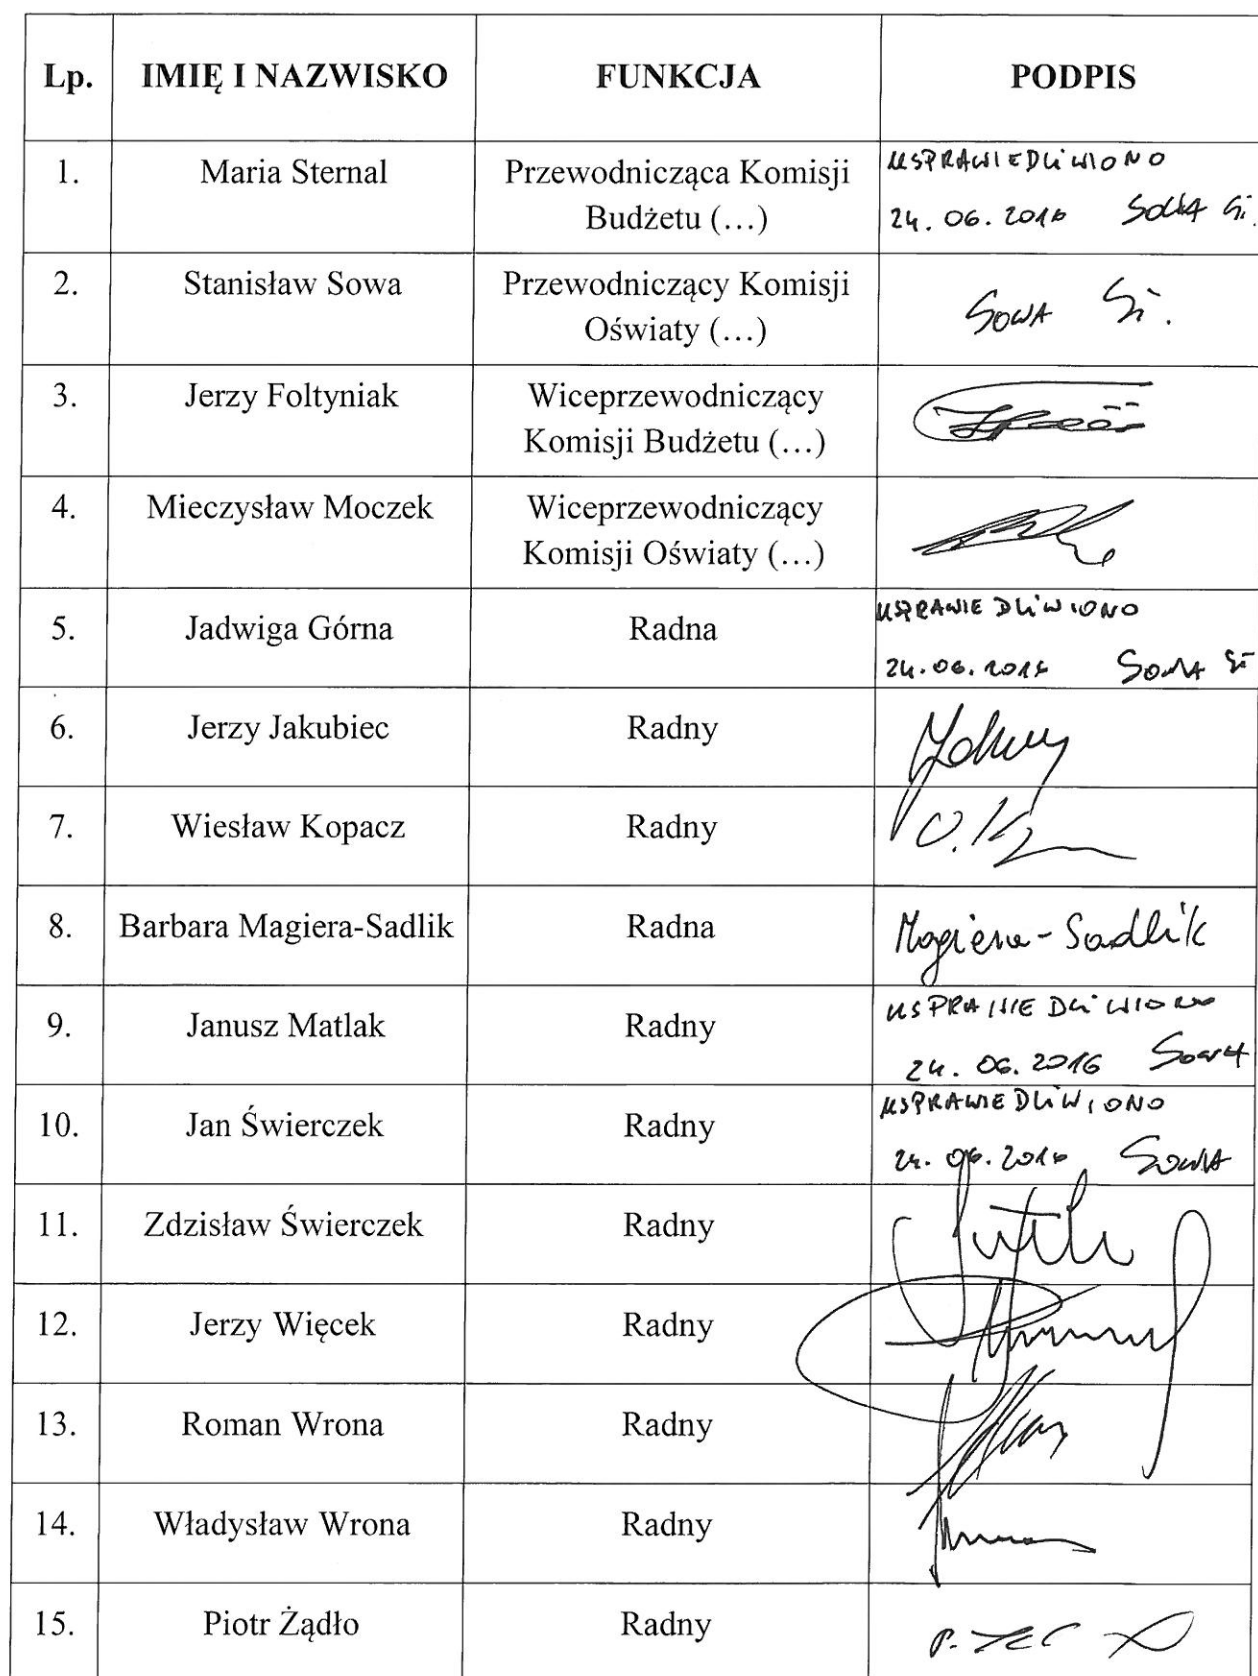 Lp. IMIĘ I NAZWISKO FUNKCJA PODPIS
1. Maria Sternal Przewodnicząca Komisji USPRAWIEDLIWIONO
Budżetu (…) 24.06.2016 SOWA St.
2. Stanisław Sowa Przewodniczący Komisji
Oświaty (…) SOWA St.
3. Jerzy Foltyniak Wiceprzewodniczący
Komisji Budżetu (…)
4. Mieczysław Moczek Wiceprzewodniczący
Komisji Oświaty (…)
5. Jadwiga Górna Radna USPRAWIEDLIWIONO
24.06.2016 SOWA St
6. Jerzy Jakubiec Radny
7. Wiesław Kopacz Radny
8. Barbara Magiera-Sadlik Radna Magiera-Sadlik
9. Janusz Matlak Radny USPRAWIEDLIWIONO
24.06.2016 SOWA
10. Jan Świerczek Radny USPRAWIEDLIWIONO
24.06.2016 SOWA
11. Zdzisław Świerczek Radny
12. Jerzy Więcek Radny
13. Roman Wrona Radny
14. Władysław Wrona Radny
15. Piotr Żądło Radny